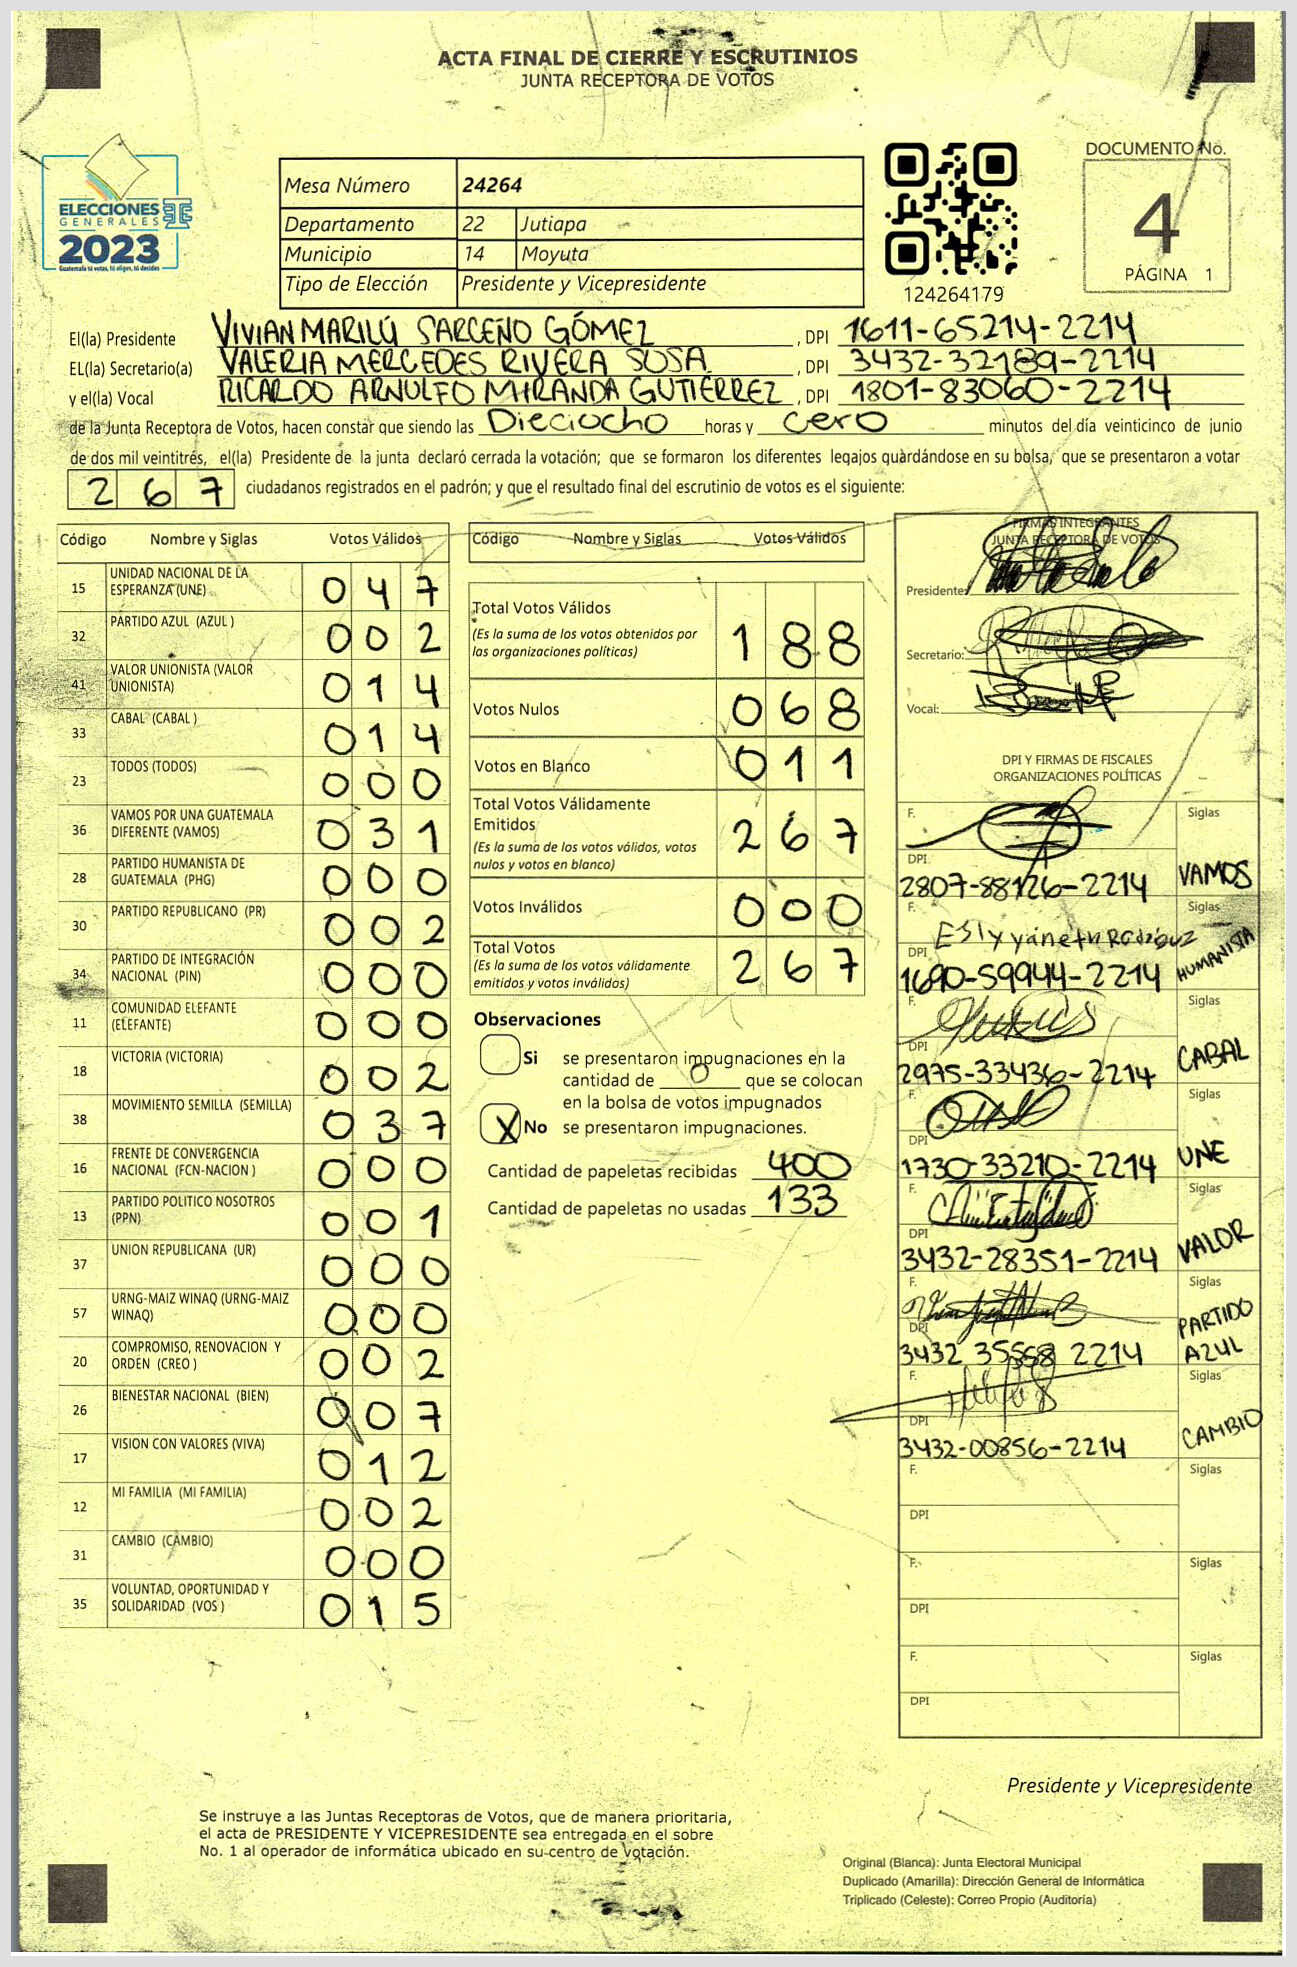 ACTA FINAL DE CIERRE Y ESCRUTINIOS
JUNTA RECEPTORA DE VOTOS
DOCUMENTO No.
4
PÁGINA 1
ELECCIONES
GENERALES
2023
Guatemala tú votas, tú eliges, tú decides
Mesa Número 24264
Departamento 22 Jutiapa
Municipio 14 Moyuta
Tipo de Elección Presidente y Vicepresidente
124264179
El(la) Presidente VIVIAN MARILÚ SARCEÑO GÓMEZ , DPI 1611-65214-2214
EL(la) Secretario(a) VALERIA MERCEDES RIVERA SOSA , DPI 3432-32189-2214
y el(la) Vocal RICARDO ARNULFO MIRANDA GUTIÉRREZ , DPI 1801-83060-2214
de la Junta Receptora de Votos, hacen constar que siendo las Dieciocho horas y cero minutos del día veinticinco de junio
de dos mil veintitrés, el(la) Presidente de la junta declaró cerrada la votación; que se formaron los diferentes legajos quàrdándose en su bolsa, que se presentaron a votar
267 ciudadanos registrados en el padrón; y que el resultado final del escrutinio de votos es el siguiente:
Código Nombre y Siglas Votos Válidos
15 UNIDAD NACIONAL DE LA ESPERANZA (UNE) 047
32 PARTIDO AZUL (AZUL ) 002
41 VALOR UNIONISTA (VALOR UNIONISTA) 014
33 CABAL (CABAL ) 014
23 TODOS (TODOS) 000
36 VAMOS POR UNA GUATEMALA DIFERENTE (VAMOS) 031
28 PARTIDO HUMANISTA DE GUATEMALA (PHG) 000
30 PARTIDO REPUBLICANO (PR) 002
34 PARTIDO DE INTEGRACIÓN NACIONAL (PIN) 000
11 COMUNIDAD ELEFANTE (ELEFANTE) 000
18 VICTORIA (VICTORIA) 002
38 MOVIMIENTO SEMILLA (SEMILLA) 037
16 FRENTE DE CONVERGENCIA NACIONAL (FCN-NACION ) 000
13 PARTIDO POLITICO NOSOTROS (PPN) 001
37 UNION REPUBLICANA (UR) 000
57 URNG-MAIZ WINAQ (URNG-MAIZ WINAQ) 000
20 COMPROMISO, RENOVACION Y ORDEN (CREO ) 002
26 BIENESTAR NACIONAL (BIEN) 007
17 VISION CON VALORES (VIVA) 012
12 MI FAMILIA (MI FAMILIA) 002
31 CAMBIO (CAMBIO) 000
35 VOLUNTAD, OPORTUNIDAD Y SOLIDARIDAD (VOS ) 015
Código Nombre y Siglas Votos Válidos
Total Votos Válidos 188
(Es la suma de los votos obtenidos por
las organizaciones políticas)
Votos Nulos 068
Votos en Blanco 011
Total Votos Válidamente
Emitidos 267
(Es la suma de los votos válidos, votos
nulos y votos en blanco)
Votos Inválidos 000
Total Votos 267
(Es la suma de los votos válidamente
emitidos y votos inválidos)
Observaciones
Si se presentaron impugnaciones en la
cantidad de 0 que se colocan
en la bolsa de votos impugnados
X No se presentaron impugnaciones.
Cantidad de papeletas recibidas 400
Cantidad de papeletas no usadas 133
FIRMAS INTEGRANTES
JUNTA RECEPTORA DE VOTOS
Presidente:
Secretario:
Vocal:
DPI Y FIRMAS DE FISCALES
ORGANIZACIONES POLÍTICAS
F. Siglas
DPI
2807-88126-2214 VAMOS
F. Siglas
DPI
1690-59944-2214 HUMANISTA
F. Siglas
DPI
2975-33436-2214 CABAL
F. Siglas
DPI
1730-33210-2214 UNE
F. Siglas
DPI
3432-28351-2214 VALOR
F. Siglas
DPI
3432 35558 2214 PARTIDO AZUL
F. Siglas
DPI
3432-00856-2214 CAMBIO
F. Siglas
DPI
F. Siglas
DPI
F. Siglas
DPI
Presidente y Vicepresidente
Se instruye a las Juntas Receptoras de Votos, que de manera prioritaria,
el acta de PRESIDENTE Y VICEPRESIDENTE sea entregada en el sobre
No. 1 al operador de informática ubicado en su centro de votación.
Original (Blanca): Junta Electoral Municipal
Duplicado (Amarilla): Dirección General de Informática
Triplicado (Celeste): Correo Propio (Auditoría)